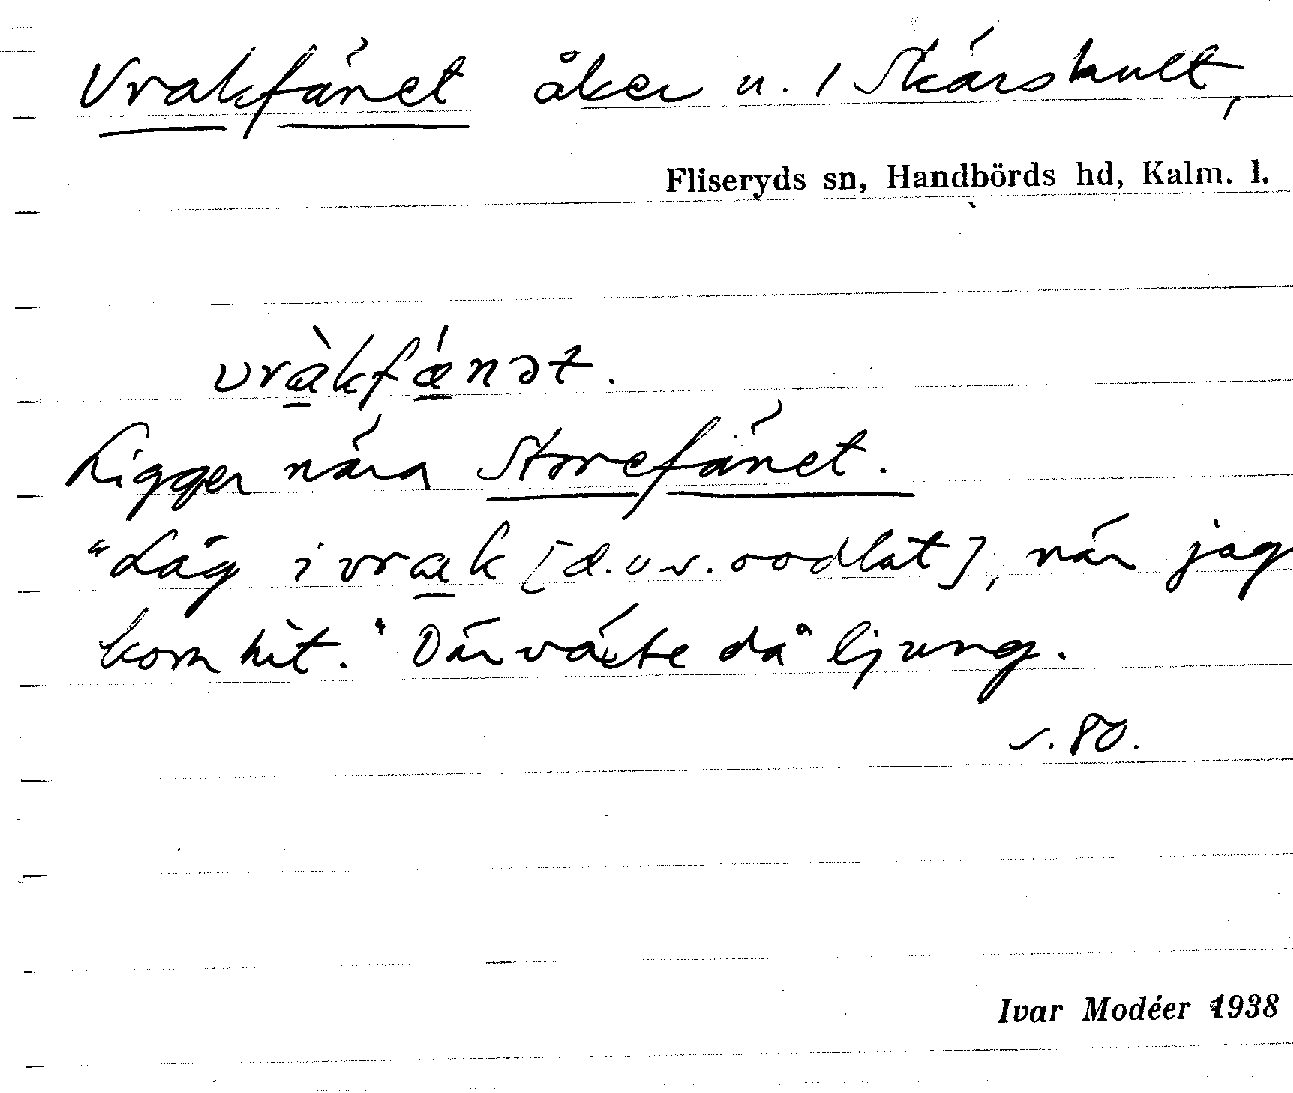 Vrakfänet åker u. 1 Skärshult,
Fliseryds sn, Handbörds hd, Kalm. l.
vràkfǽnət.
Ligger nära Storefänet.
"Låg i vrak [d.v.s. oodlat], när jag
kom hit." Där växte då ljung.
s. 80.
Ivar Modéer 1938